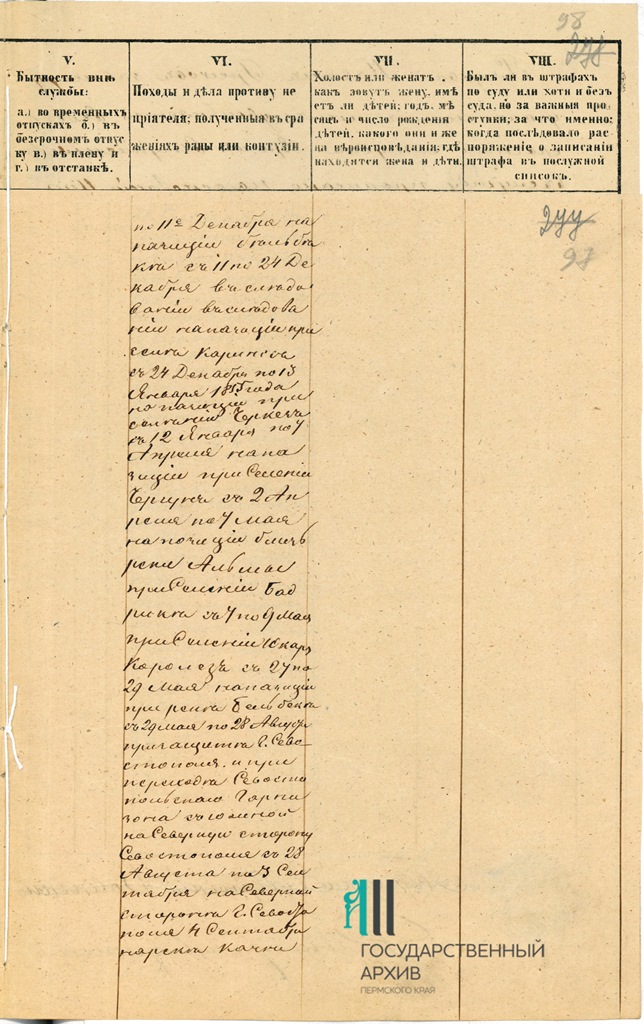 98
277
V.
Бытность внѣ
службы:
а.) во временныхъ
отпускахъ б.) въ
безсрочномъ отпус
ку в.) въ плену и
г.) въ отставкѣ.
VI.
Походы и дѣла противу не
пріятеля; полученныя въ сра
женіяхъ раны или контузіи.
VII.
Холостъ или женатъ.
какъ зовутъ жену, имѣ
етъ ли дѣтей; годъ, мѣ
сяцъ и число рожденія
дѣтей, какого они и же
на вѣроисповѣданія; гдѣ
находятся жена и дѣти.
VIII.
Былъ ли въ штрафахъ
по суду или хотя и безъ
суда, но за важныя про
ступки; за что именно;
когда послѣдовало рас
поряженіе о записаніи
штрафа въ послужной
списокъ.
277
98
по 11е Декабря на
позиціи бельбе
ка съ 11 по 24 Де
кабря въ слѣдо
ваніи въ слѣдова
ніи на позиціи при
съ 24 Декабря по 13
Января 1855 года
на позиціи при
селеніи
съ 12 Января по 7
Апрѣля на по
зиціи при Селеніи
Чоргунъ съ 2 Ап
рѣля по 7 Мая
на позиціи близъ
реки Альмы
при Селеніи
съ 7 по 9 Мая
при Селеніи Юкары
Каролезъ съ 27 по
29 Мая на позиціи
при реке Бельбеке
съ 29 Мая по 28 Августа
при защите г. Сева
стополя, и при
переходе Севасто
польскаго Гарни
зона съ южной
на Северную сторону
Севастополя съ 28
Августа по 3 Сен
тября на Северной
стороне г. Севасто
поля 4 Сентября
Качи
ГОСУДАРСТВЕННЫЙ
АРХИВ
ПЕРМСКОГО КРАЯ